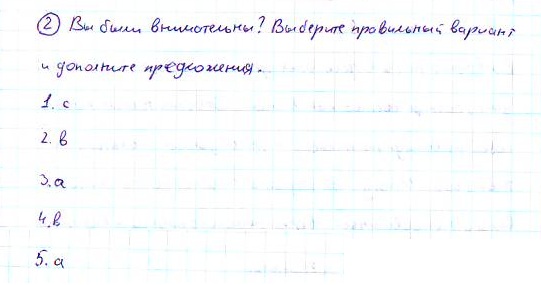 ② Вы были внимательны? Выберите правильный вариант
и дополните предложения.
1. c
2. b
3. a
4. b
5. a